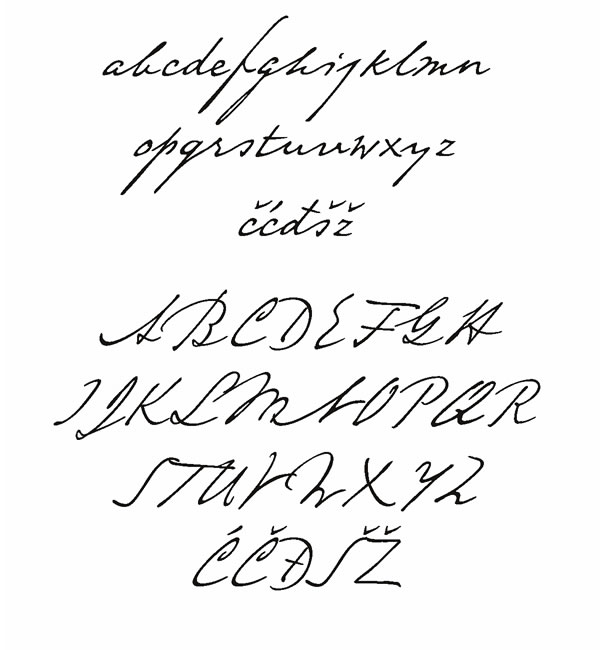 abcdefghijklmn
opqrstuvwxyz
čćđšž
ABCDEFGH
IJKLMNOPQR
STUVWXYZ
ĆČĐŠŽ